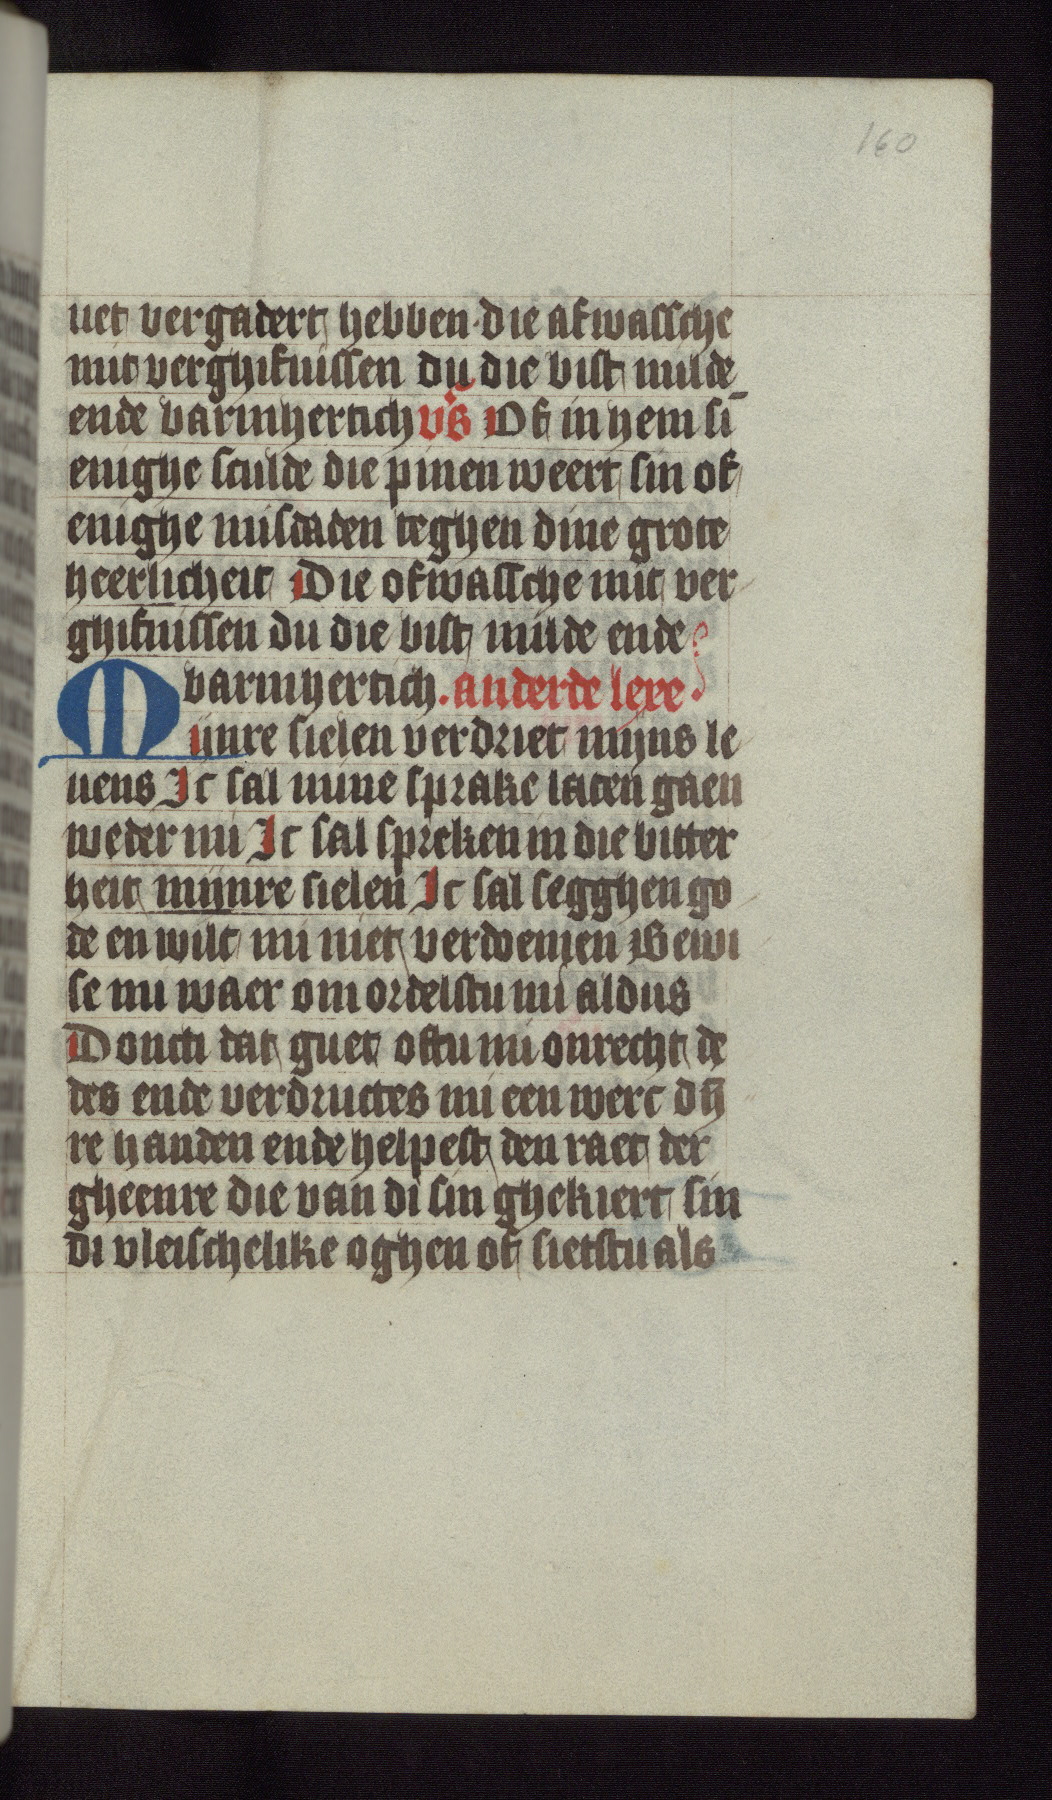 160
uet vergadert hebben. die afwassche
mit verghifnissen du die bist milde
ende barmhertich vs̄ Of in hem si
enighe sculde die pinen weert sin of
enighe misdaden teghen dine grote
heerlicheit Die ofwassche mit ver
ghifnissen du die bist milde ende
barmhertich. anderde lexe
Mijnre sielen verdriet mijns le
uens Ic sal mine sprake laten gaen
weder mi Ic sal spreken in die bitter
heit mijnre sielen Ic sal segghen go
de en wilt mi niet verdoemen Bewi
se mi waer om ordelstu mi aldus
Doncti dat guet oftu mi onrecht de
des ende verdructes mi een werc dij̄
re handen ende helpest den raet der
gheenre die van di sin ghekiert sin
di vleischelike oghen of sietstu als